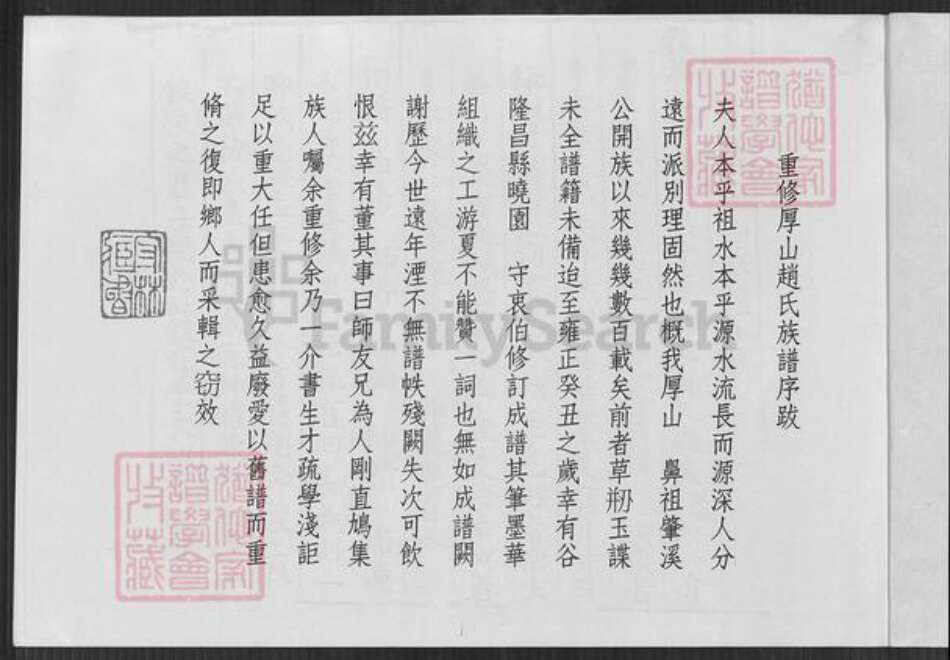 重修厚山趙氏族譜序跋
夫人本乎祖水本乎源水流長而源深人分
遠而派別理固然也概我厚山 鼻祖肇溪
公開族以來幾幾數百載矣前者草刱玉諜
未全譜籍未備迨至雍正癸丑之歲幸有谷
隆昌縣曉園 守衷伯修訂成譜其筆墨華
組織之工游夏不能贊一詞也無如成譜闕
謝歷今世遠年湮不無譜帙殘闕失次可飲
恨玆幸有董其事曰師友兄為人剛直鳩集
族人囑余重修余乃一介書生才疏學淺詎
足以重大任但患愈久益廢爰以舊譜而重
脩之復即鄉人而采輯之窃效
FamilySearch